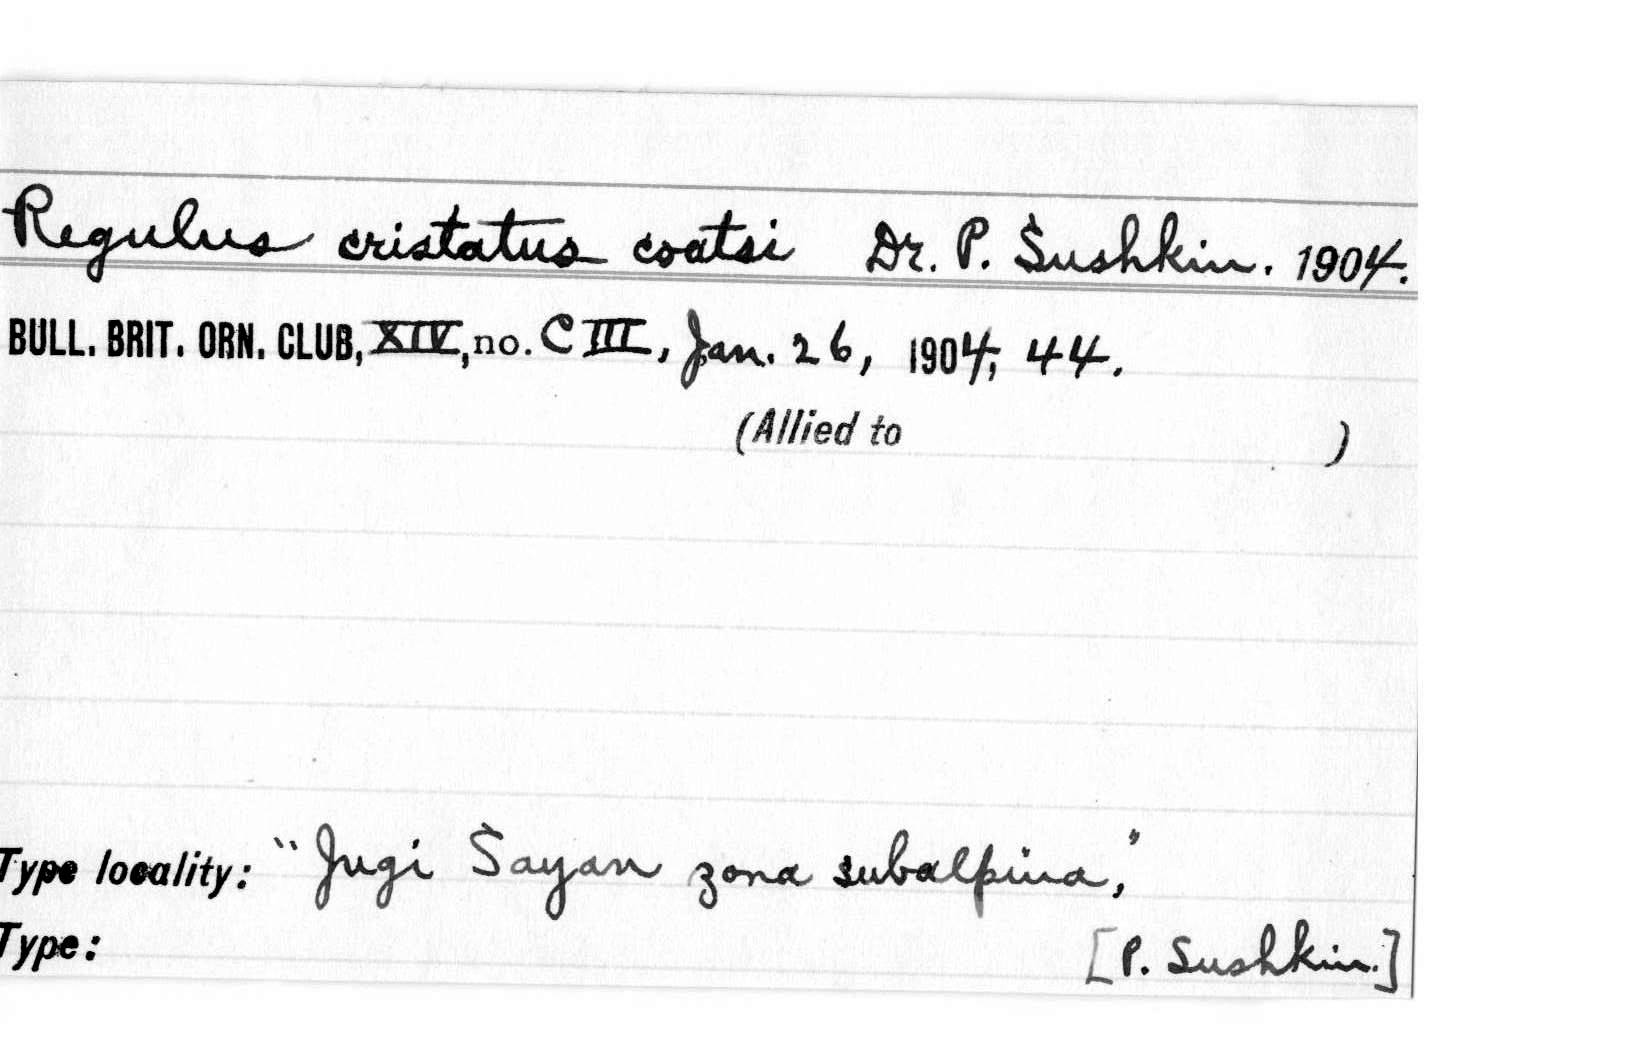 Regulus cristatus coatsi Dr. P. Sushkin. 1904.
BULL. BRIT. ORN. CLUB, XIV, no. CIII, Jan. 26, 1904, 44.
(Allied to )
Type locality: "Jugi Sayan zona subalpina,"
Type: [P. Sushkin.]